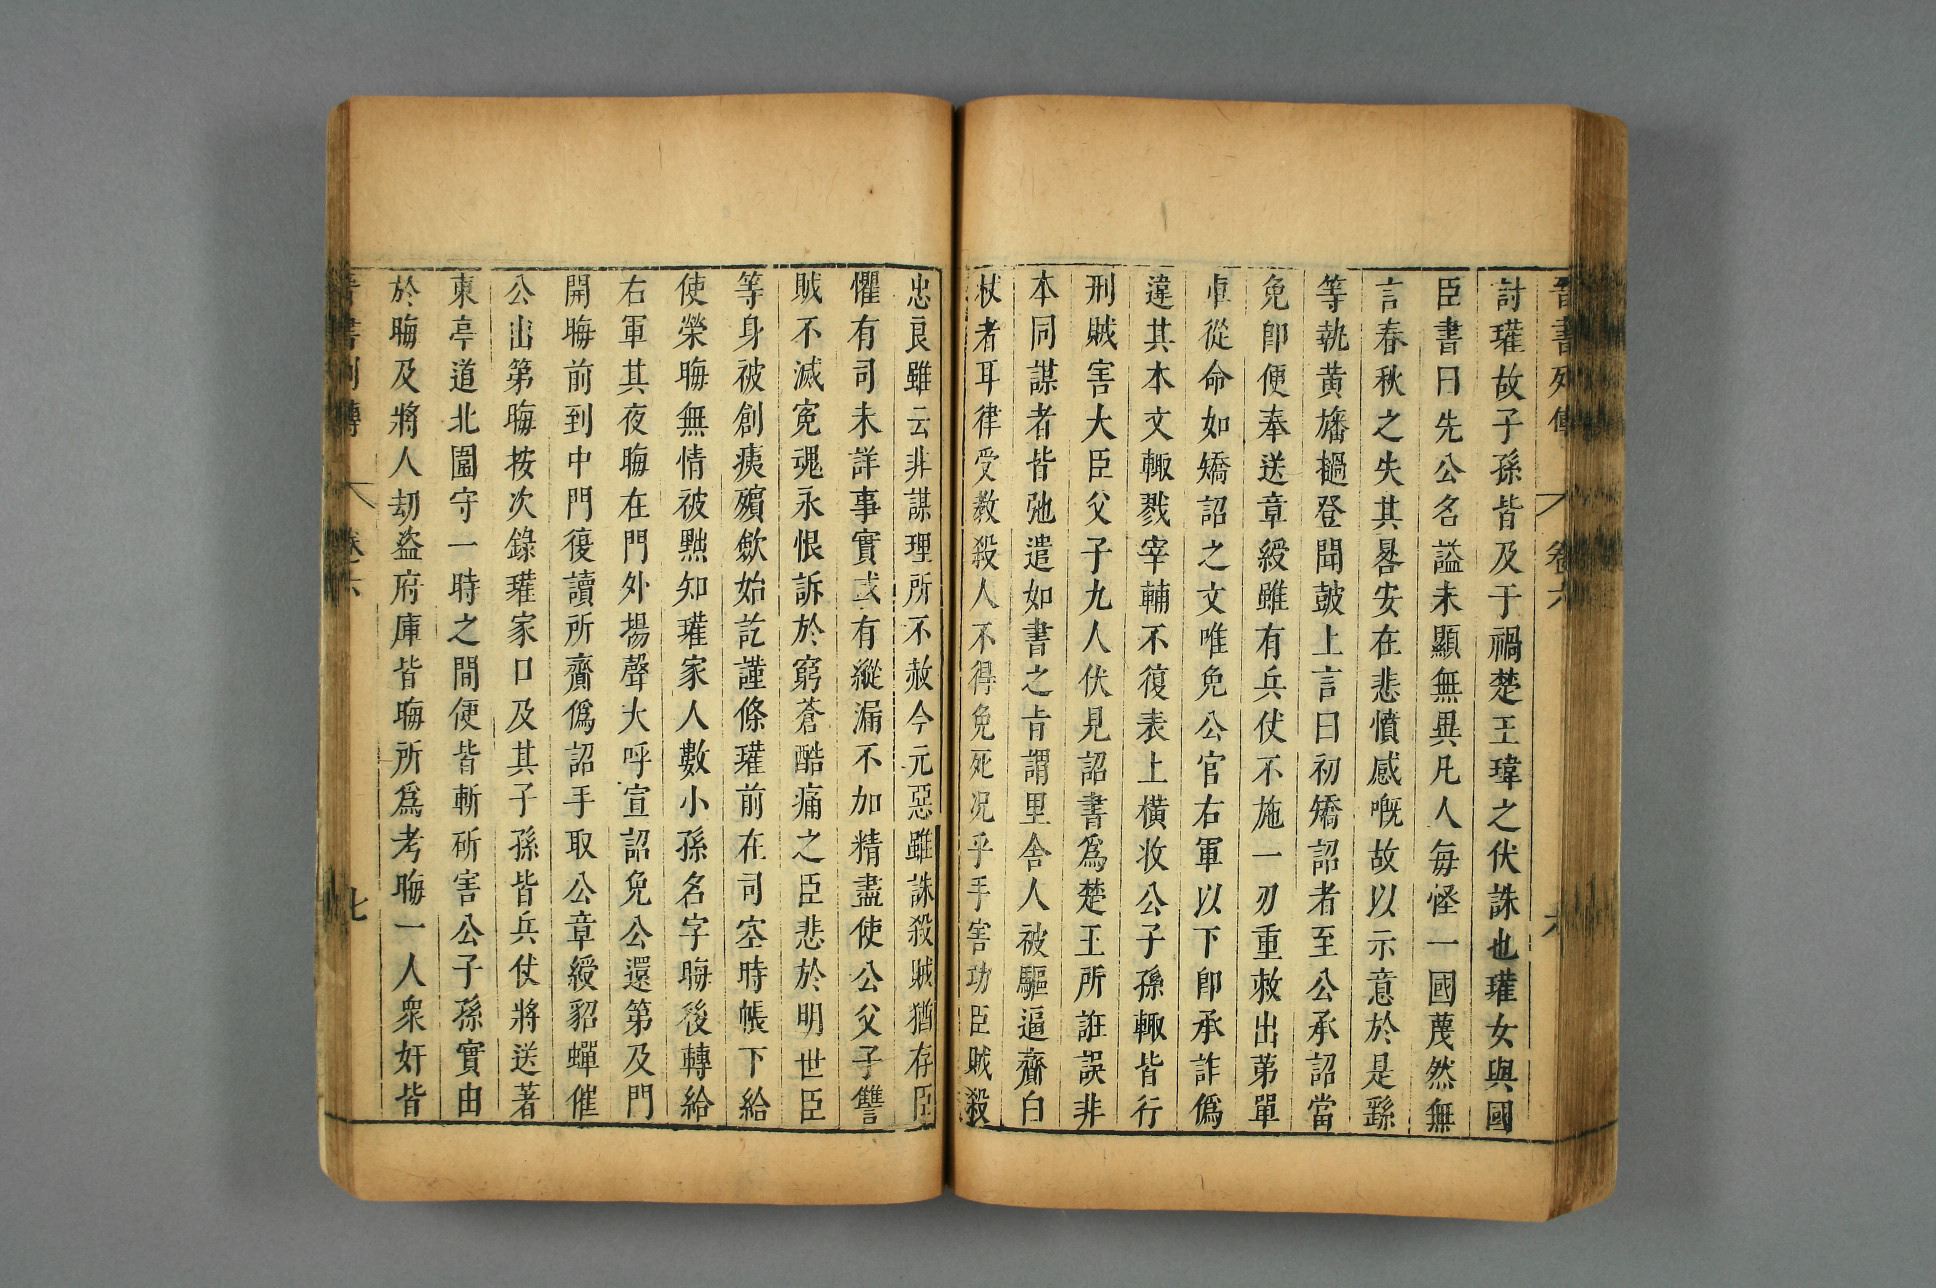 晉書列傳 卷六 六
討瓘故子孫皆及于禍楚王瑋之伏誅也瓘女與國
臣書曰先公名謚未顯無異凡人每怪一國蔑然無
言春秋之失其咎安在悲憤感慨故以示意於是繇
等執黃旛撾登聞鼓上言曰初矯詔者至公承詔當
免卽便奉送章綬雖有兵仗不施一刃重敕出第單
車從命如矯詔之文唯免公官右軍以下卽承詐僞
違其本文輒戮宰輔不復表上橫收公子孫輒皆行
刑賊害大臣父子九人伏見詔書爲楚王所誑誤非
本同謀者皆弛遣如書之旨謂里舍人被驅逼齎白
杖者耳律受敎殺人不得免死况乎手害功臣賊殺
忠良雖云非謀理所不赦今元惡雖誅殺賊猶存臣
懼有司未詳事實或有縱漏不加精盡使公父子讐
賊不滅寃魂永恨訴於窮蒼酷痛之臣悲於明世臣
等身被創痍殯歛始訖謹條瓘前在司空時帳下給
使榮晦無情被黜知瓘家人數小孫名字晦後轉給
右軍其夜晦在門外揚聲大呼宣詔免公還第及門
開晦前到中門復讀所齎僞詔手取公章綬貂蟬催
公出第晦按次錄瓘家口及其子孫皆兵仗將送著
東亭道北圍守一時之間便皆斬斫害公子孫實由
於晦及將人劫盜府庫皆晦所爲考晦一人衆奸皆
晉書列傳 卷六 七